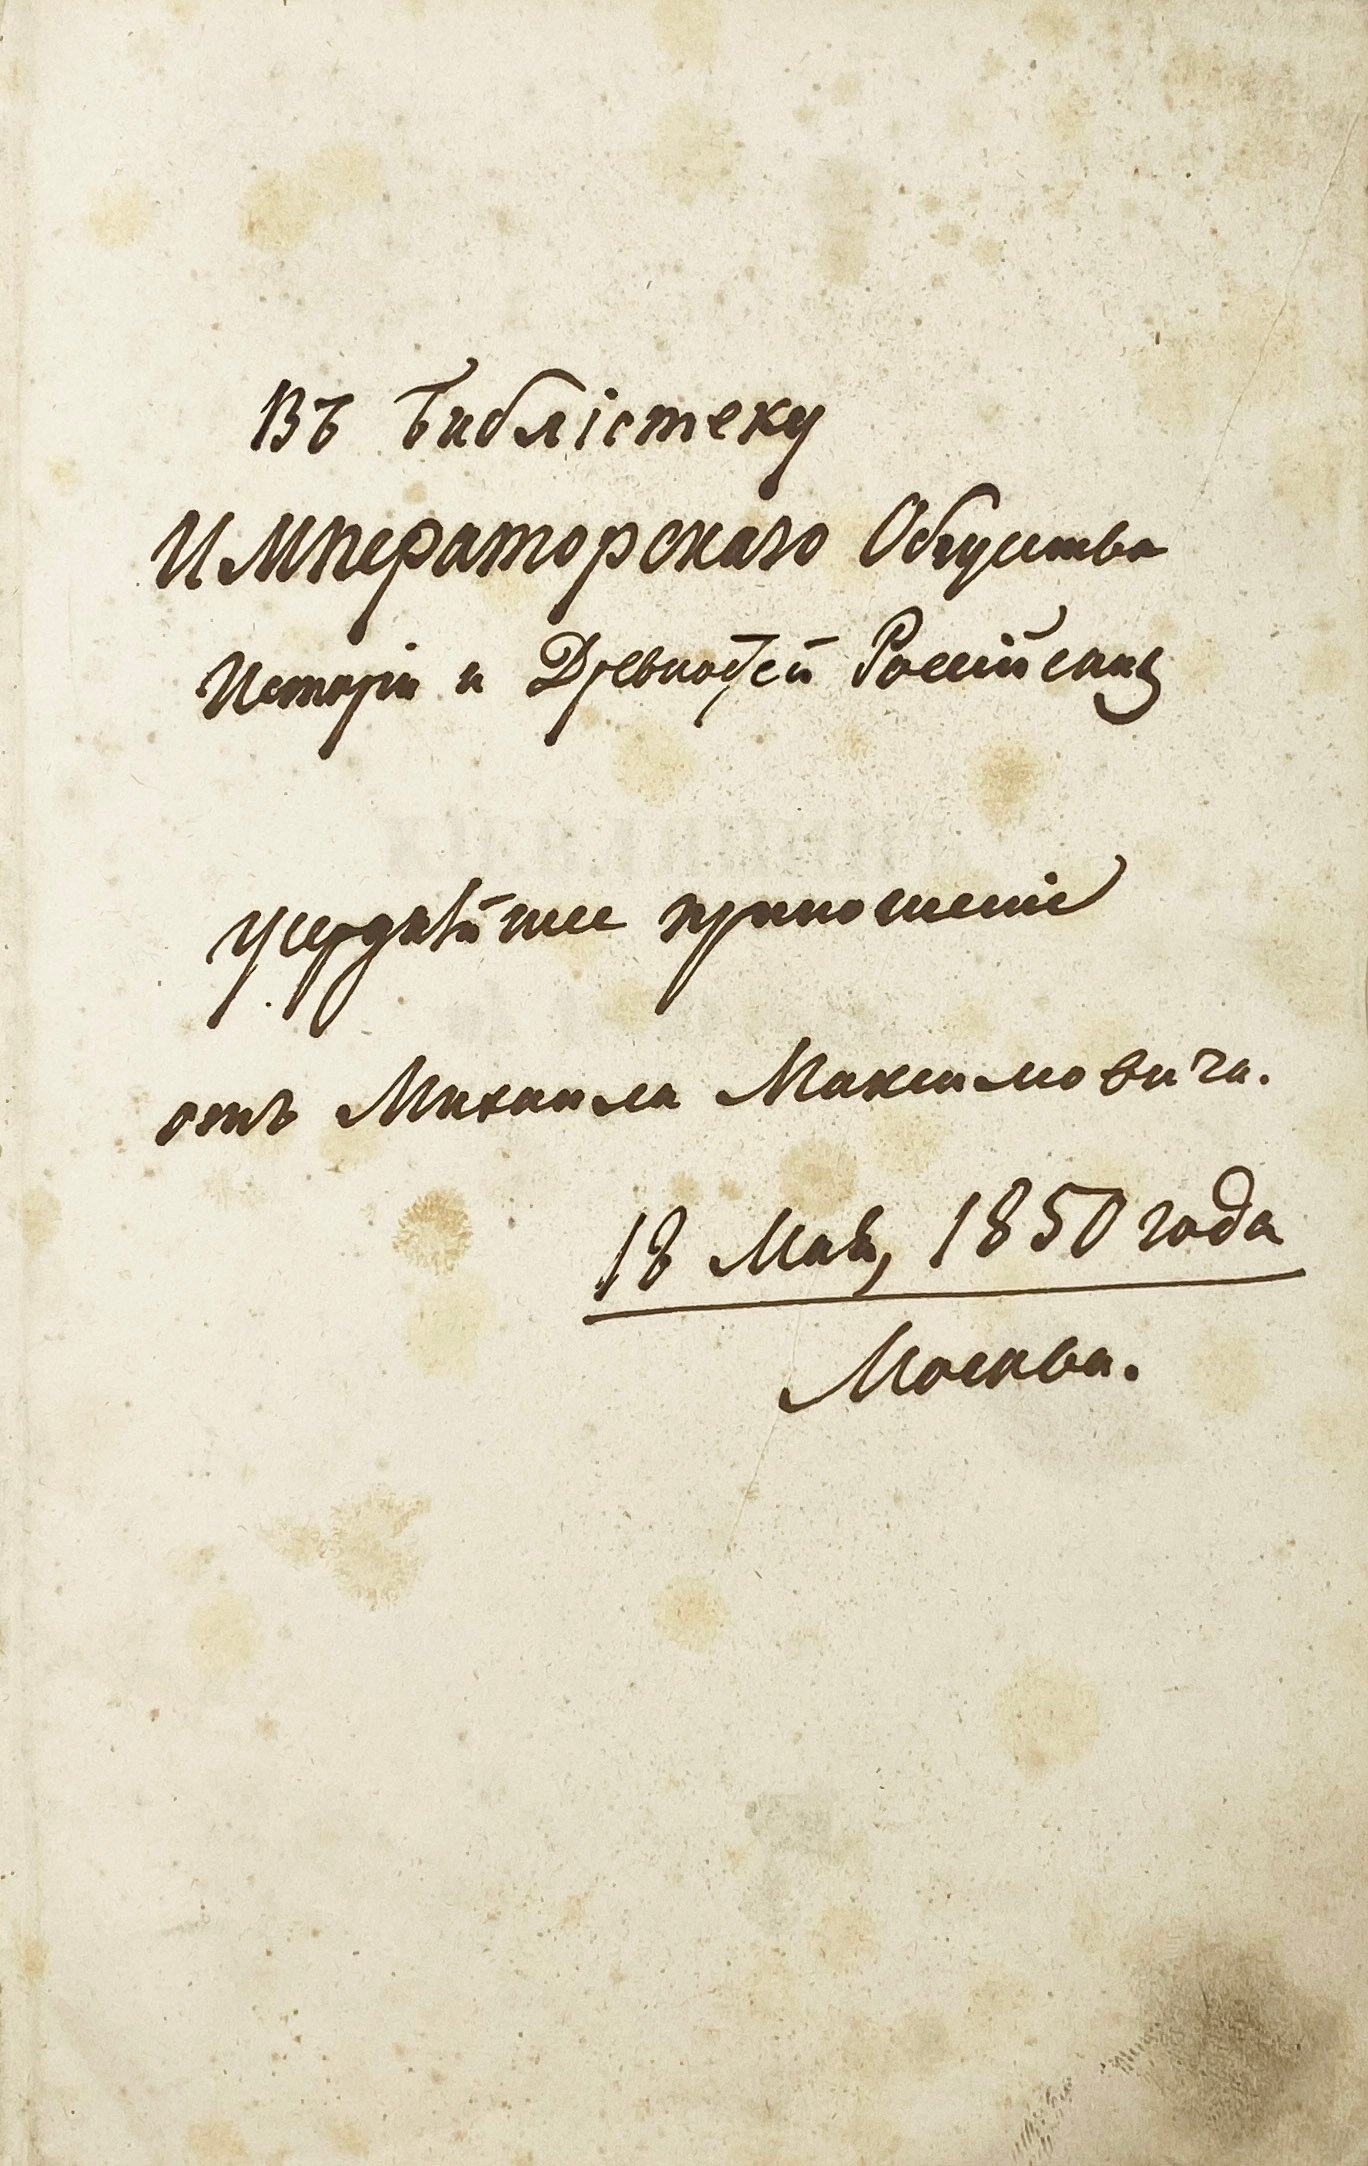 Въ Библіотеку
Императорскаго Общества
Исторіи и Древностей Россійскихъ
усерднѣйшее приношеніе
отъ Михаила Максимовича.
18 Мая, 1850 года
Москва.